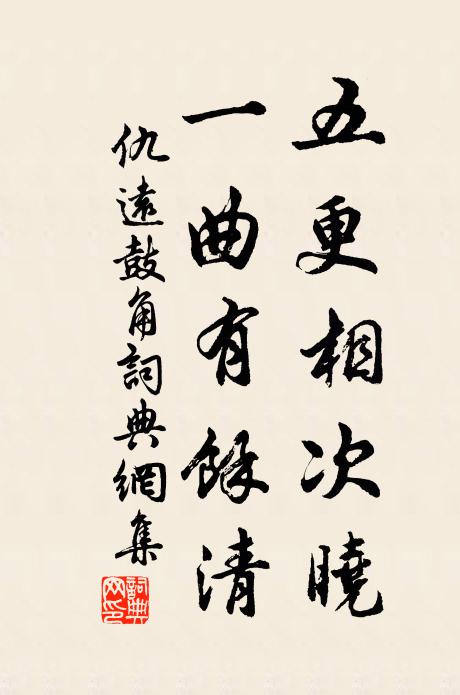 五更相次曉
一曲有餘清
仇遠鼓角詞典網集
詞典網印